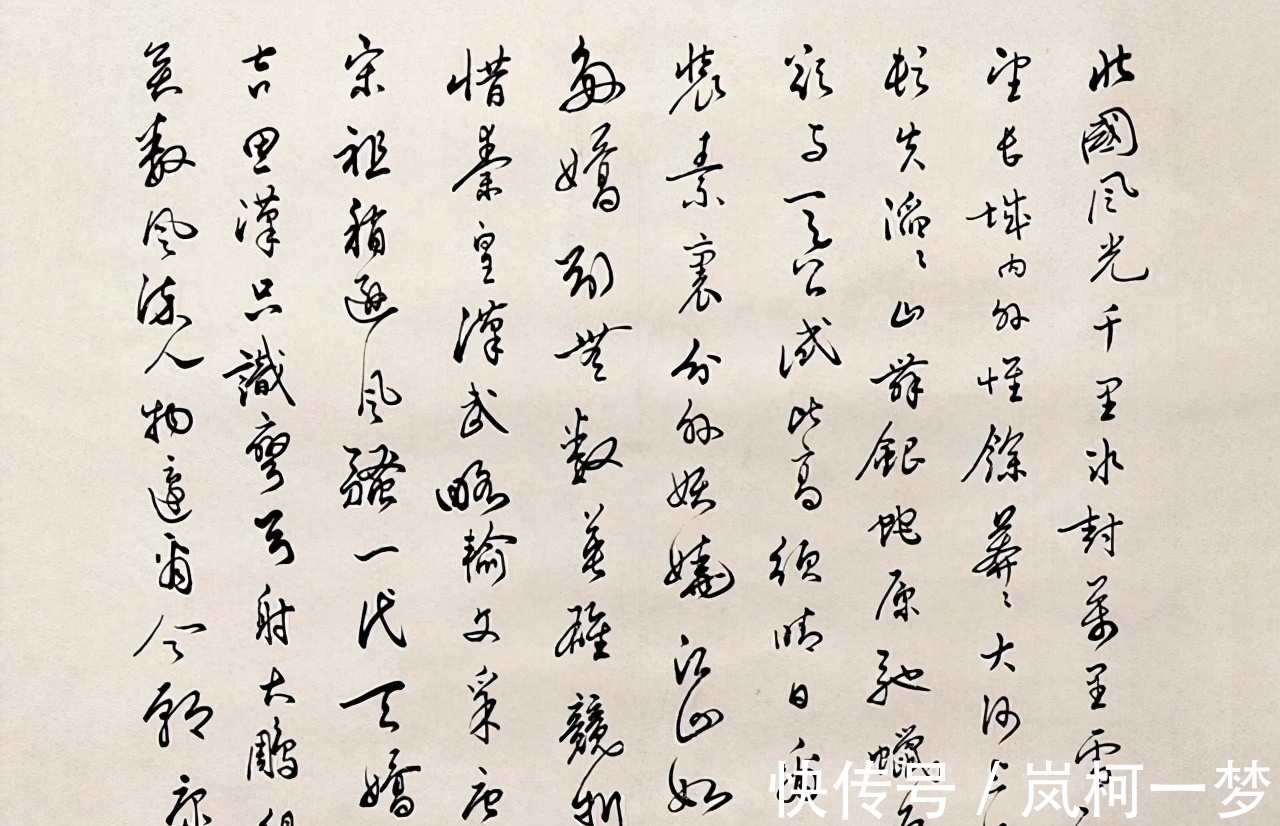 北國風光千里冰封萬里雪
望长城内外惟餘莽〻大河上
頓失滔〻山舞銀蛇原馳蠟
欲与天公试比高须晴日看
裝素裹分外妖嬈江山如
多嬌引無數英雄競折
惜秦皇漢武略輸文采唐
宋祖稍遜風騷一代天驕
吉思漢只識彎弓射大鵰俱
矣數風流人物還看今朝
快传号 / 岚柯一梦